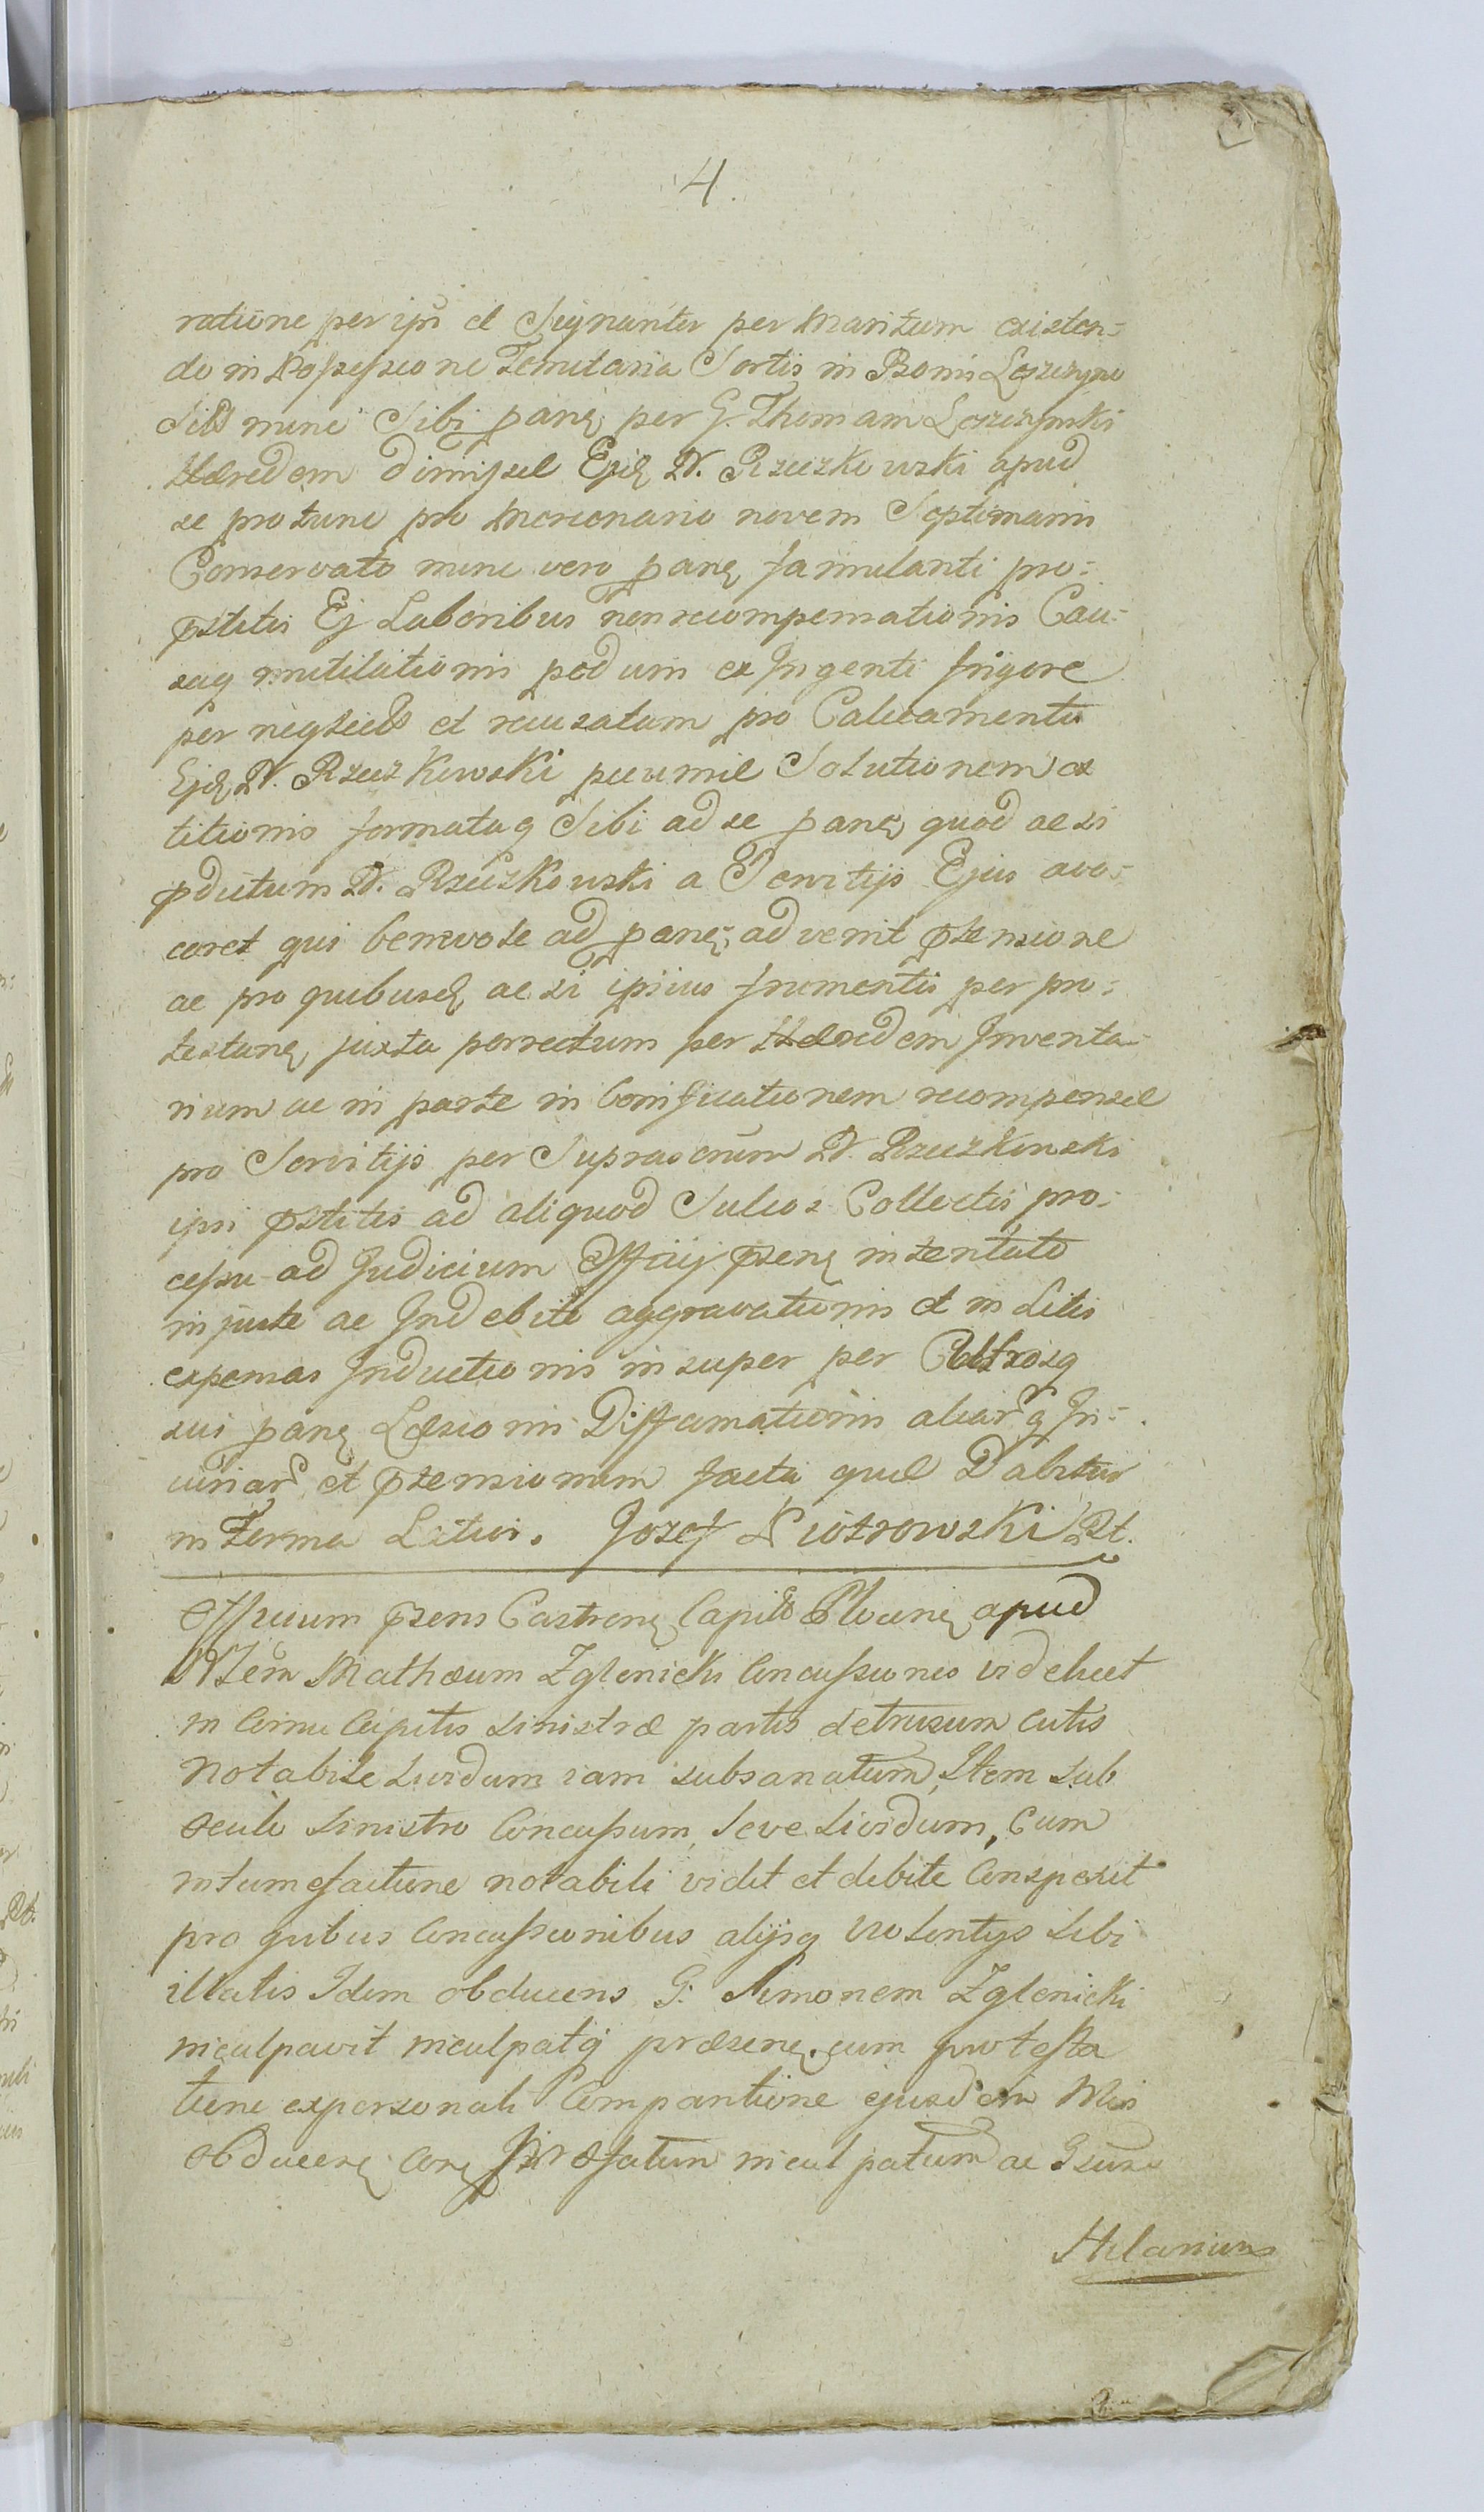 4.
ratione per ipsi et Signanter per Maritum existen=
do in Possessione Tenutaria Sortis in Bonis Leszczyno
nunc Sibi pane per G. Thomam Leszczynski
Hæredem dimissæ N. Rzeczkowski apud
se pro tunc pro Mercenario novem Septimanis
Conservato nunc vero pane famulanti pro=
pstitis Ej Laboribus non recompensationis Cau=
saq mutilationis pedum ex Ingenti frigore
per neglectū et recusatam pro Calceamento
Ejd N. Rzeczkowski pecuniæ Solutionem ex
titionis formataq Sibi ad se pane quod ac si
pdictum N. Rzeczkowski a Servitijs Ejus avo=
caret qui benevole ad pane advenit ptensione
ac pro quibusd ac si ipsius frumentis per pro=
testane juxta porrectum per Hæredem Inventa=
rium ac in parte in bonificationem recompensæ
pro Servitijs per Suprascrum N. Rzeczkowski
ipsi pstitis ad aliquod Sulcos Collectis pro=
cessu ad Judicium Officij psens intentato
injuste ac Indebite aggravationis et in Litis
expensas Inductionis insuper per
sui pane Læsionis Diffamationis aliarq In=
iuriar et ptensionum facta quæ Dabitur
in Terma Latius. Jozef Piotrowski Rt.
Officium psens Castrene Capitle Plocene apud
Mathæum Zglenicki Concussiones videlicet
in Cornu Capitis sinistræ partis detrusum Cutis
notabile Lividum iam subsanatum, Item sub
oculo sinistro Concussum, leve Lividum, Cum
intumefactione notabili vidit et debite Conspexit
pro quibus Concussionibus alijsq violentijs sibi
illatis Idem obducens G. Simonem Zglenicki
inculpavit inculpatq præsene cum protesta
tione ex personali Comparitione ejusdem Mis
obducene Core Præfatum inculpatum ac
Hilarium